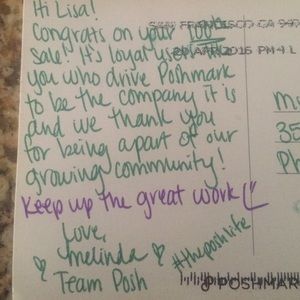 Hi Lisa!
Congrats on your 100th
sale! It's loyal users like
you who drive Poshmark
to be the company it is
and we thank you
for being apart of our
growing community!
Keep up the great work
Love,
Melinda
Team Posh
#theposhlife
SAN FRANCISCO CA
20 APR 2016 PM 4 L
POSHMAR